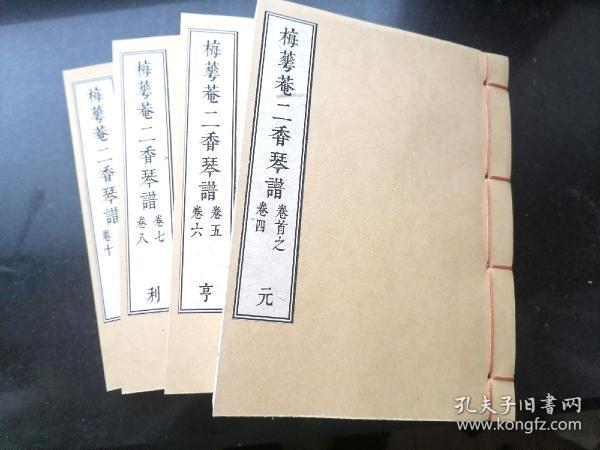 梅蕚菴二香琴譜
卷首之
卷四
元
梅蕚菴二香琴譜
卷五
卷六
亨
梅蕚菴二香琴譜
卷七
卷八
利
梅蕚菴二香琴譜
卷十
孔夫子旧书网
www.kongfz.com